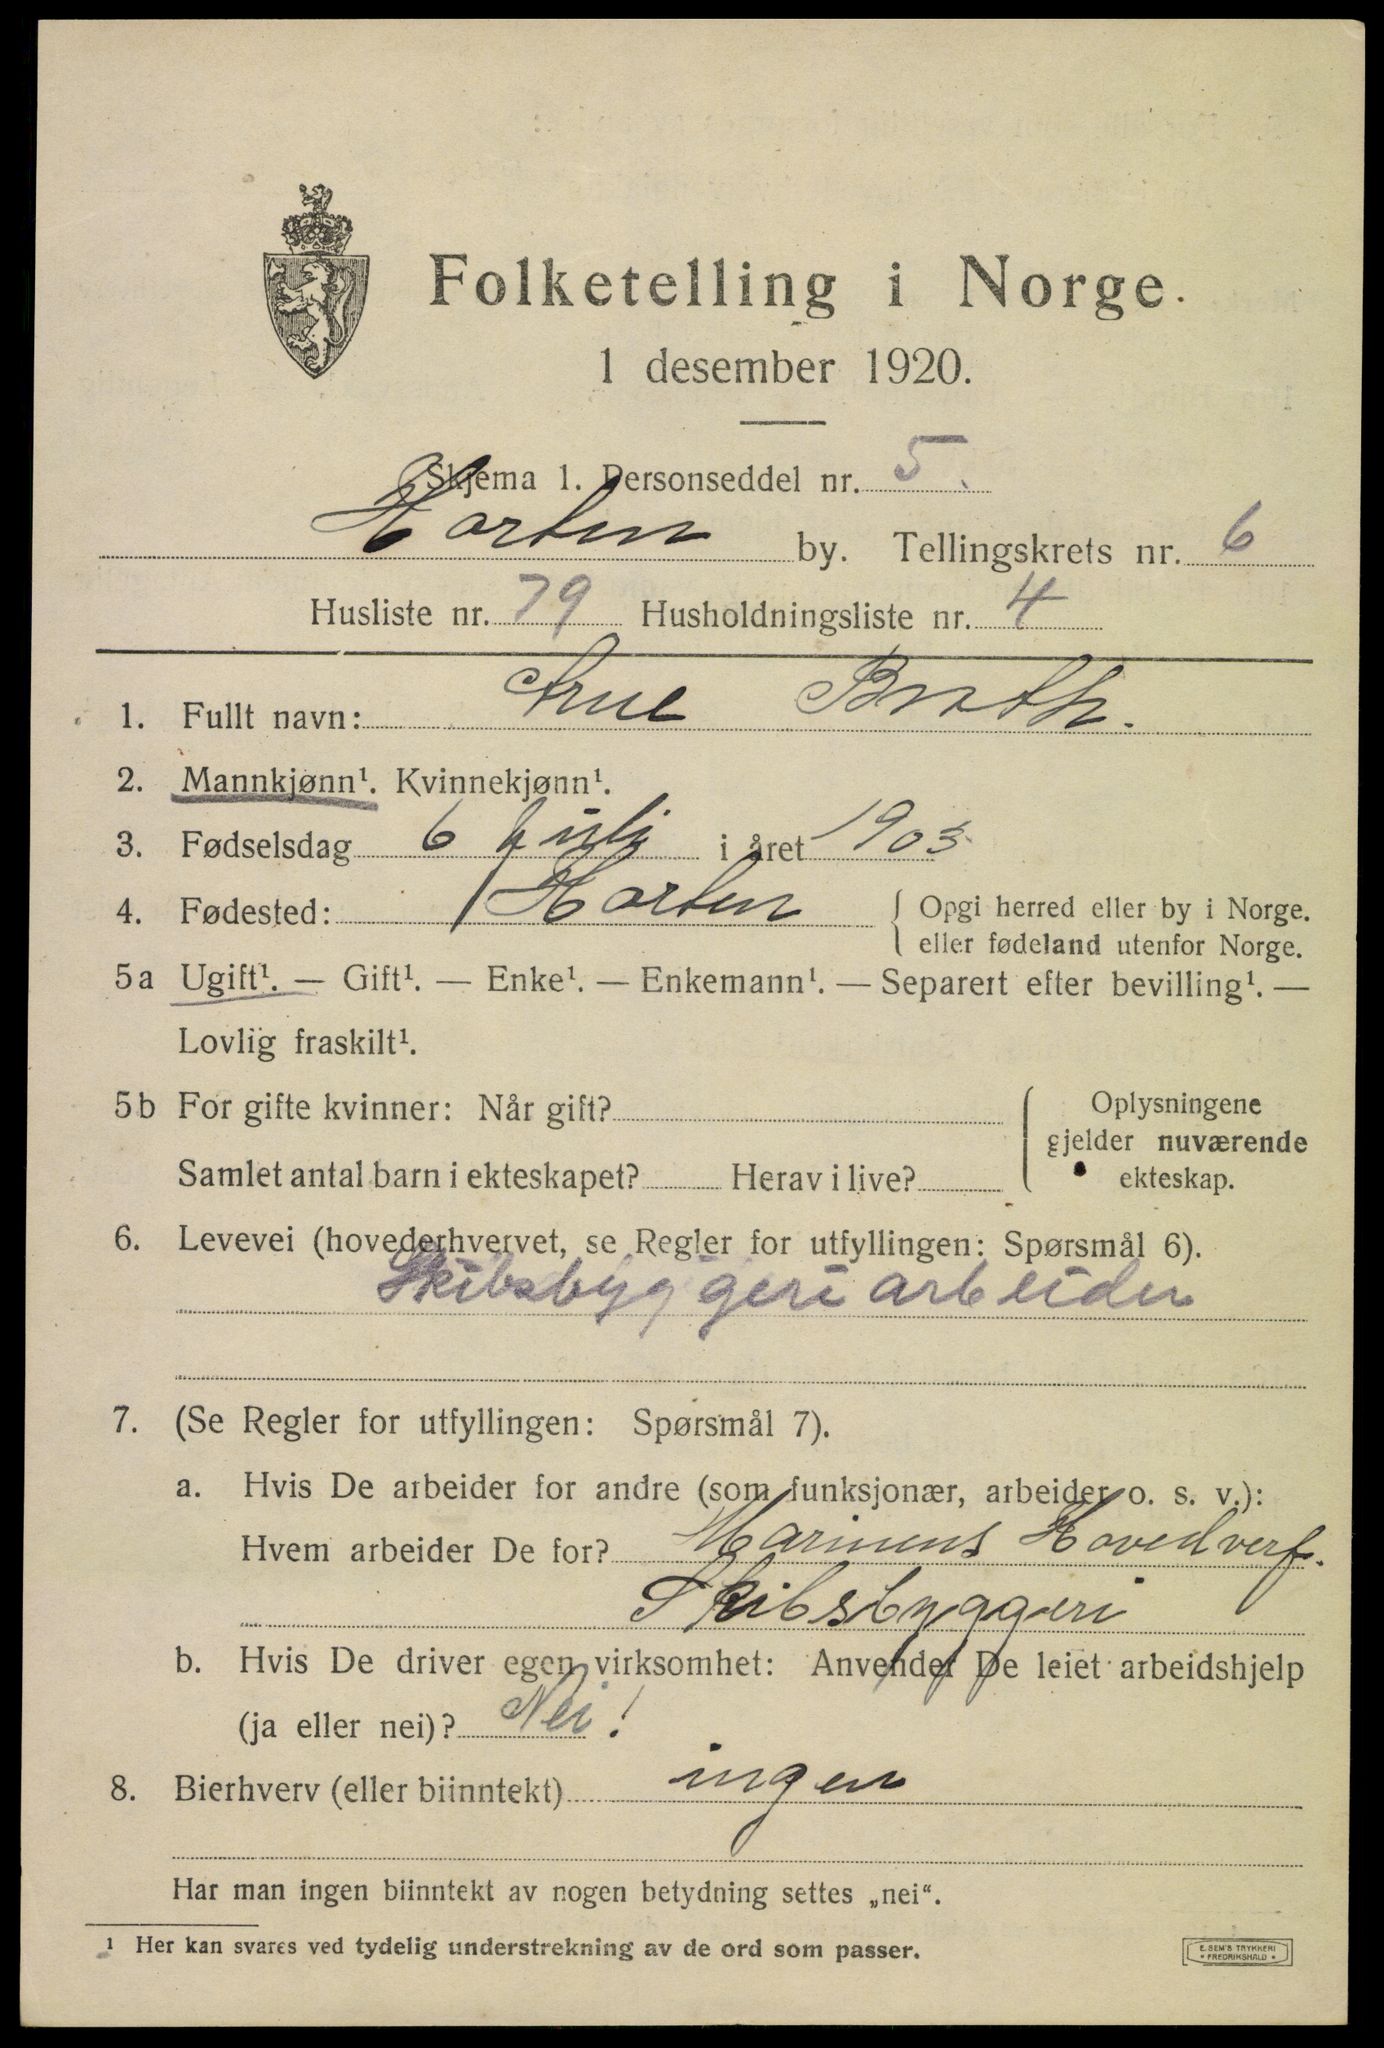 Folketelling i Norge.
1 desember 1920.
Skjema 1. Personseddel nr. 5.
Horten by. Tellingskrets nr. 6
Husliste nr. 79 Husholdningsliste nr. 4
1. Fullt navn: Arne Brath.
2. Mannkjønn¹. Kvinnekjønn¹.
3. Fødselsdag 6 juli i året 1903
4. Fødested: Horten { Opgi herred eller by i Norge.
{ eller fødeland utenfor Norge.
5a Ugift¹. — Gift¹. — Enke¹. — Enkemann¹. — Separert efter bevilling¹. —
Lovlig fraskilt¹.
5b For gifte kvinner: Når gift? Oplysningene
gjelder nuværende
Samlet antal barn i ekteskapet? Herav i live? ekteskap.
6. Levevei (hovederhvervet, se Regler for utfyllingen: Spørsmål 6).
Skibsbyggeriarbeider
7. (Se Regler for utfyllingen: Spørsmål 7).
a. Hvis De arbeider for andre (som funksjonær, arbeider o. s. v.):
Hvem arbeider De for? Marinens Hovedverf.
Skibsbyggeri
b. Hvis De driver egen virksomhet: Anvender De leiet arbeidshjelp
(ja eller nei)? Nei!
8. Bierhverv (eller biinntekt) ingen
Har man ingen biinntekt av nogen betydning settes „nei“.
¹ Her kan svares ved tydelig understrekning av de ord som passer.
E. SEM'S TRYKKERI
* FREDRIKSHALD *